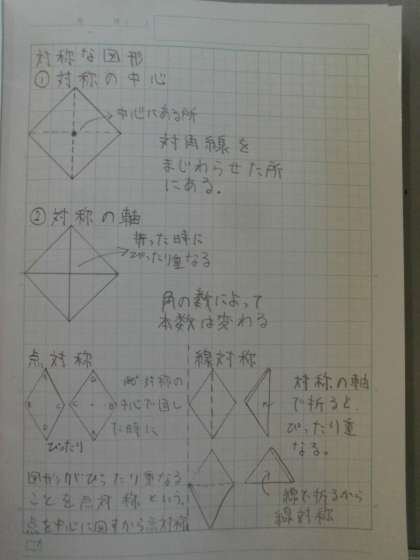 対称な図形
①対称の中心
中心にある所
対角線を
まじわらせた所
にある。
②対称の軸
折った時に
ぴったり重なる
角の数によって
本数は変わる
点対称
対称の
中心で回し
た時に
ぴったり
図形がぴったり重なる
ことを点対称という。
点を中心に回すから点対称
線対称
対称の軸
で折ると
ぴったり重
なる。
線で折るから
線対称